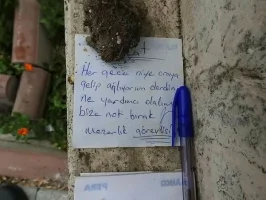 Her gece niye oraya
gelip ağlıyorsun derdin
ne yardımcı olalım
bize not bırak
mezarlık görevlisi